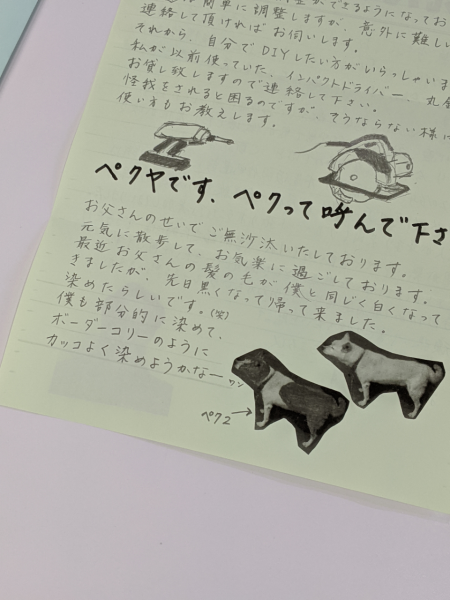 簡単に調整しますが、意外に難しい
連絡して頂ければお伺いします。
それから、自分でDIYしたい方がいらっしゃいま
私が以前使っていた、インパクトドライバー、丸
お貸し致しますので連絡して下さい。
怪我をされると困るのですが、そうならない様に
使い方もお教えします。
ペクヤです、ペクって呼んで下さ
お父さんのせいでご無沙汰いたしております。
元気に散歩して、お気楽に過ごしております。
最近お父さんの髪の毛が僕と同じく白くなって
きましたが、先日黒くなって帰って来ました。
染めたらしいです。(笑)
僕も部分的に染めて、
ボーダーコリーのように
カッコよく染めようかなーワン
ペク2→